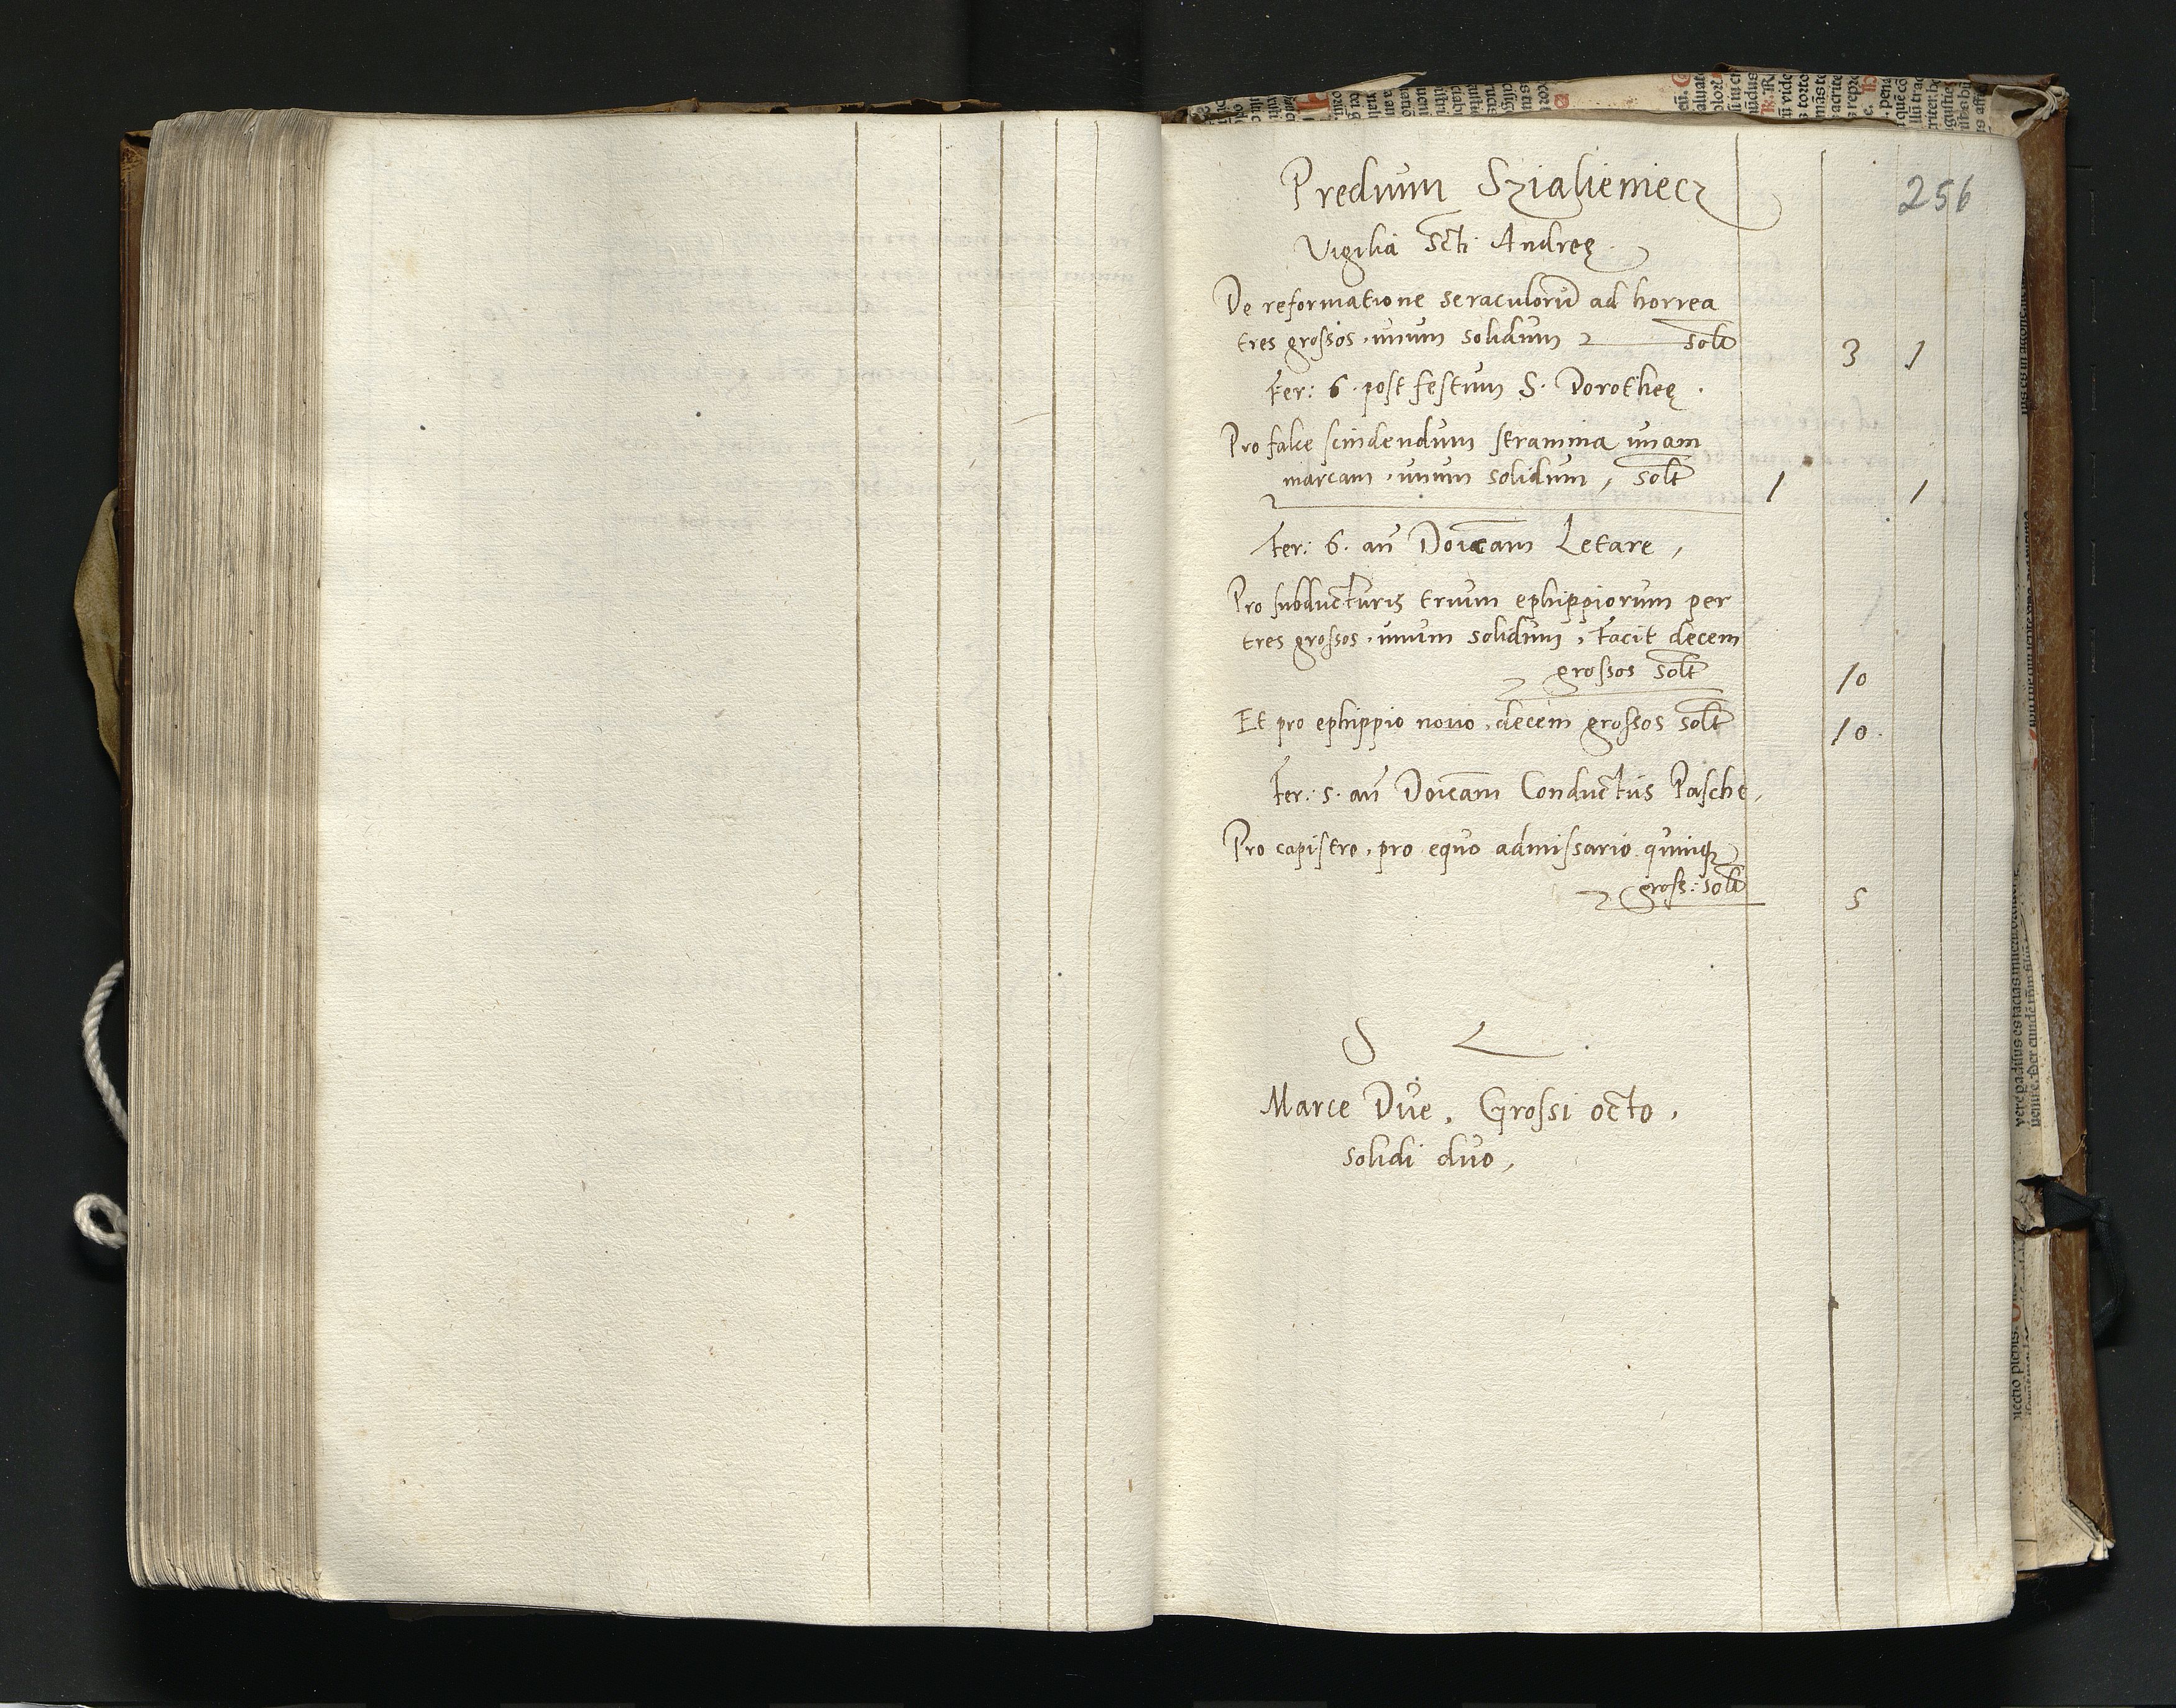 256
Predium Szialieniecz
Vigilia Scti Andreę.
De reformatione seraculorū ad horrea
tres grossos, unum solidum solt 3 1
Fer: 6. post festum S. Dorotheę.
Pro falce scindendum stramina unam
marcam, unum solidum, solt 1 1
Fer: 6. an̄ Doīcam Letare,
Pro subducturis trium ephippiorum per
tres grossos, unum solidum, Facit decem
grossos solt 10
Et pro ephippio novo, decem grossos solt 10.
Fer: 5. an̄ Doīcam Conductus Pasche,
Pro capistro, pro equo admissario quinq
gross: solt 5
S L.
Marce Due, Grossi octo,
solidi duo,